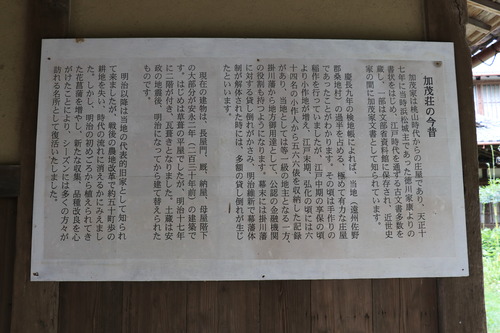 加茂荘の今昔
加茂家は桃山時代からの庄屋であり、天正十
七年に当時浜松城主であった徳川家康よりの
書状をはじめ、江戸時代を通ずる古文書多数を
蔵し、一部は文部省資料館に保存され、近世史
家の間に加茂家文書として知られています。
慶長九年の検地帳によれば、当地（遠州佐野
郡桑地村）の過半を占める、極めて有力な庄屋
であったことがわかります。その頃は手作りの
稲作を行っていましたが、江戸中期の享保の頃
より小作地が増え、江戸末期、弘化の頃には六
十四名の小作人で五六六俵を収納した記録
があり、当地としては等一級の地主となる一方、
掛川藩から地方御用達として、公認の金融機関
の役割も持つようになります。幕末には掛川藩
に対する貸し倒れがかさみ、明治維新で幕藩体
制が解体された時には、多額の貸し倒れが生じ
たといいます。
現在の建物は、長屋門、厩、納屋、母屋階下
の大部分が安永二年（二百三十年前）の建築で
す。はじめは草葺の平屋でしたが、明治十七年
に二階が付き、瓦葺となりました。土蔵は安
政の地震後、明治になってから建て替えられた
ものです。
明治以降は当地の代表的旧家として知られ
て来ましたが、戦後の農地改革で約五十町歩の
耕地を失い、時代の流れに消えるかにみえまし
た。しかし、明治の初めごろから植えられてき
た花菖蒲を増やし、新たな収集、品種改良を心
がけたことにより、シーズンには多くの方々が
訪れる名所として復活いたしました。